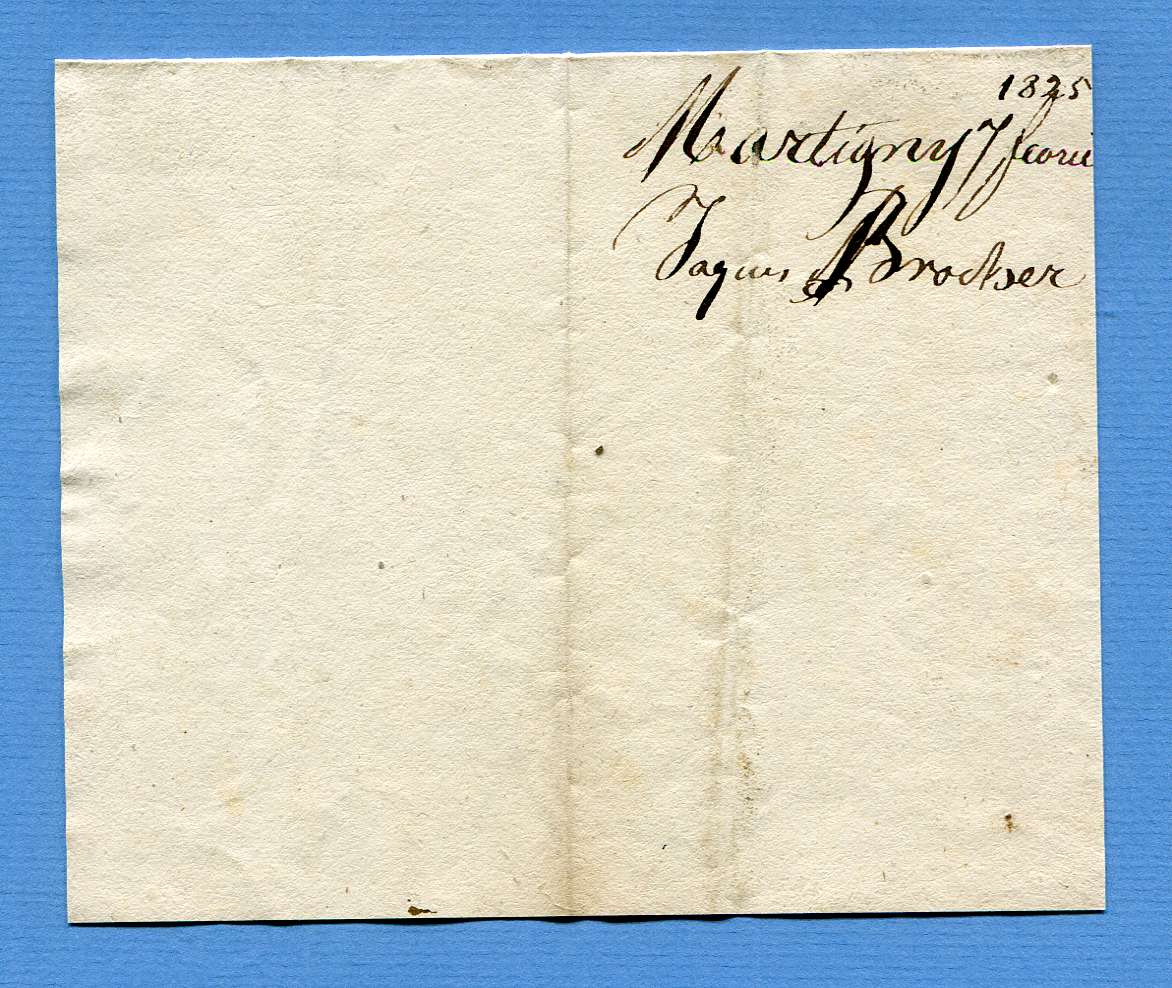 1825
Martigny 7 fevrie
Jaques Brocher